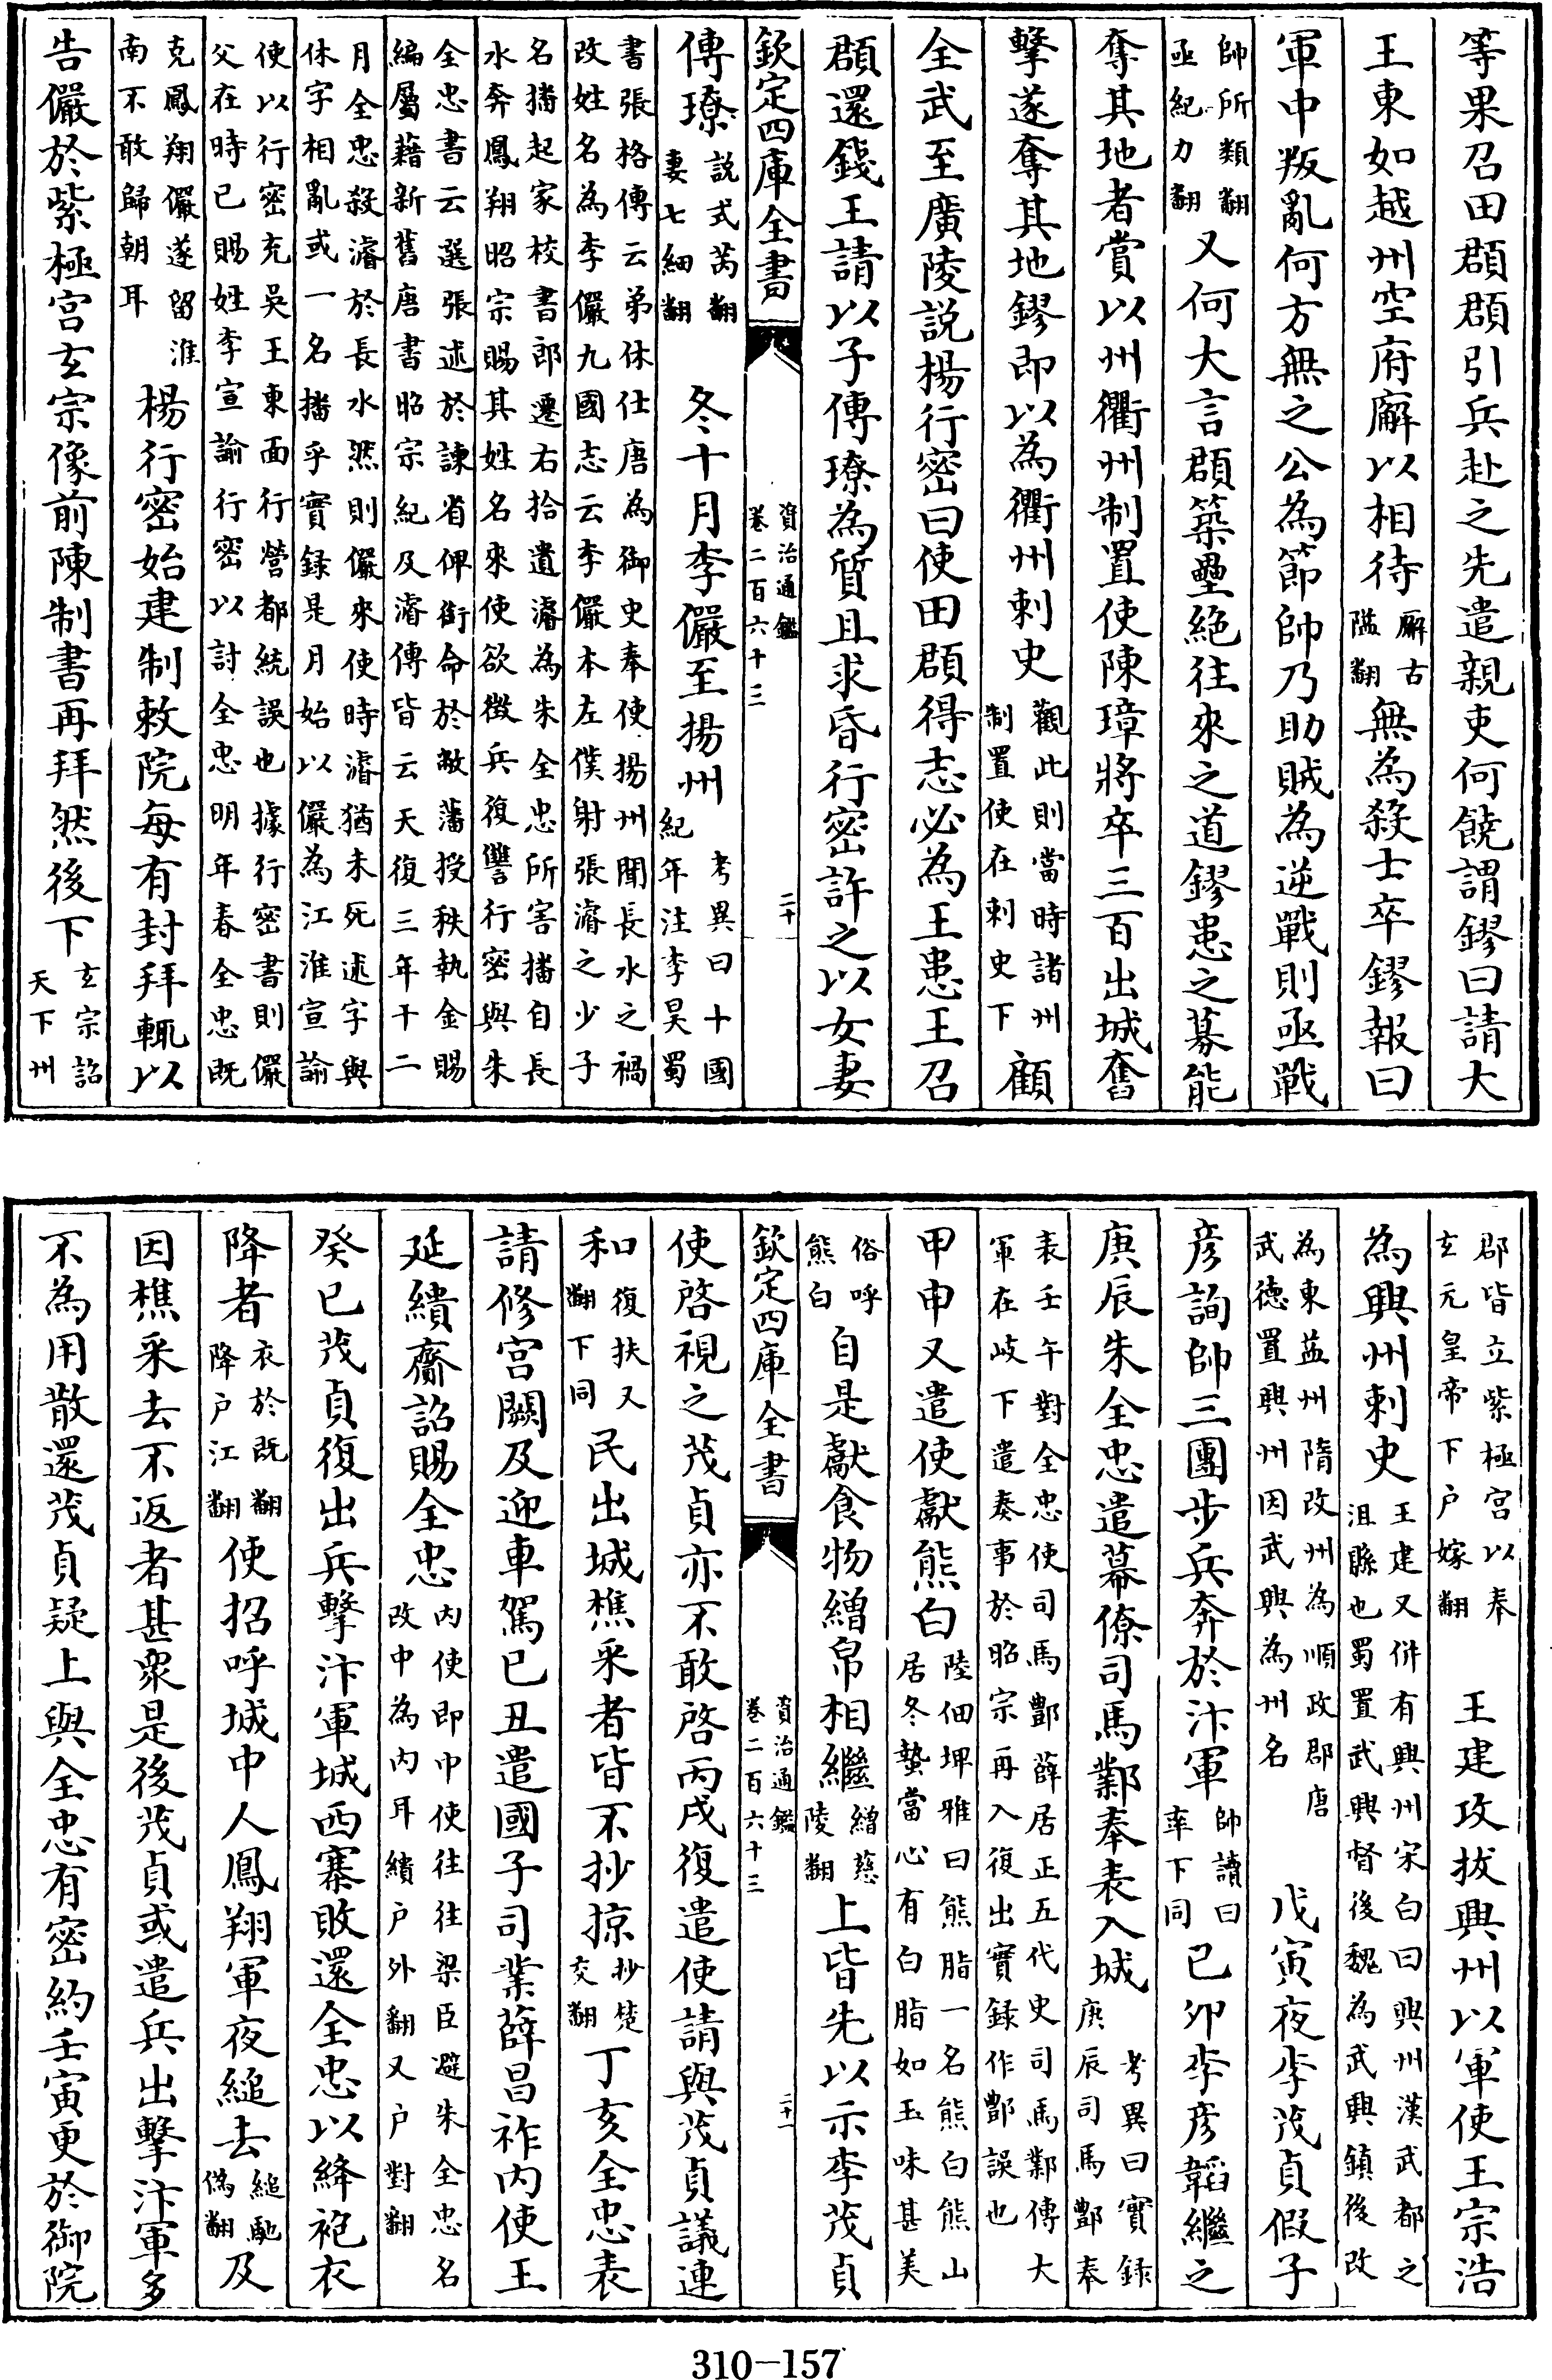 等果召田頵頵引兵赴之先遣親吏何饒謂鏐曰請大
王東如越州空府廨以相待廨古隘翻無為殺士卒鏐報曰
軍中叛亂何方無之公為節帥乃助賊為逆戰則亟戰
帥所類翻亟紀力翻又何大言頵築壘絶往來之道鏐患之募能
奪其地者賞以州衢州制置使陳璋將卒三百出城奮
擊遂奪其地鏐即以為衢州刺史觀此則當時諸州制置使在刺史下顧
全武至廣陵説楊行密曰使田頵得志必為王患王召
頵還錢王請以子傳璙為質且求昏行密許之以女妻
欽定四庫全書 資治通鑑卷二百六十三 二十
傳璙説式芮翻妻七細翻 冬十月李儼至揚州考異曰十國紀年注李昊蜀
書張格傳云弟休仕唐為御史奉使揚州聞長水之禍
改姓名為李儼九國志云李儼本左僕射張濬之少子
名播起家校書郎遷右拾遺濬為朱全忠所害播自長
水奔鳳翔昭宗賜其姓名來使欲徵兵復讐行密與朱
全忠書云選張述於諫省俾銜命於敝藩授秩執金賜
編屬藉新舊唐書昭宗紀及濬傳皆云天復三年十二
月全忠殺濬於長水然則儼來使時濬猶未死述字與
休字相亂或一名播乎實録是月始以儼為江淮宣諭
使以行密充吳王東面行營都統誤也據行密書則儼
父在時已賜姓李宣諭行密以討全忠明年春全忠既
克鳳翔儼遂留淮南不敢歸朝耳 楊行密始建制敕院每有封拜輒以
告儼於紫極宫玄宗像前陳制書再拜然後下玄宗詔天下州
郡皆立紫極宫以奉玄元皇帝下户嫁翻 王建攻拔興州以軍使王宗浩
為興州刺史王建又併有興州宋白曰興州漢武都之沮縣也蜀置武興督後魏為武興鎮後改
為東益州隋改州為順政郡唐武德置興州因武興為州名 戊寅夜李茂貞假子
彦詢帥三團步兵奔於汴軍帥讀曰率下同己卯李彦韜繼之
庚辰朱全忠遣幕僚司馬鄴奉表入城考異曰實録庚辰司馬酆奉
表壬午對全忠使司馬酆薛居正五代史司馬鄴傳大
軍在岐下遣奏事於昭宗再入復出實録作酆誤也
甲申又遣使獻熊白陸佃埤雅曰熊脂一名熊白熊山居冬蟄當心有白脂如玉味甚美
俗呼熊白自是獻食物繒帛相繼繒慈陵翻上皆先以示李茂貞
欽定四庫全書 資治通鑑卷二百六十三 二十一
使啓視之茂貞亦不敢啓丙戌復遣使請與茂貞議連
和復扶又翻下同民出城樵采者皆不抄掠抄楚交翻丁亥全忠表
請修宫闕及迎車駕己丑遣國子司業薛昌祚内使王
延繢齎詔賜全忠内使即中使往往梁臣避朱全忠名改中為内耳繢户外翻又户對翻
癸巳茂貞復出兵擊汴軍城西寨敗還全忠以絳袍衣
降者衣於既翻降户江翻使招呼城中人鳳翔軍夜縋去縋馳偽翻及
因樵采去不返者甚衆是後茂貞或遣兵出擊汴軍多
不為用散還茂貞疑上與全忠有密約壬寅更於御院
310-157